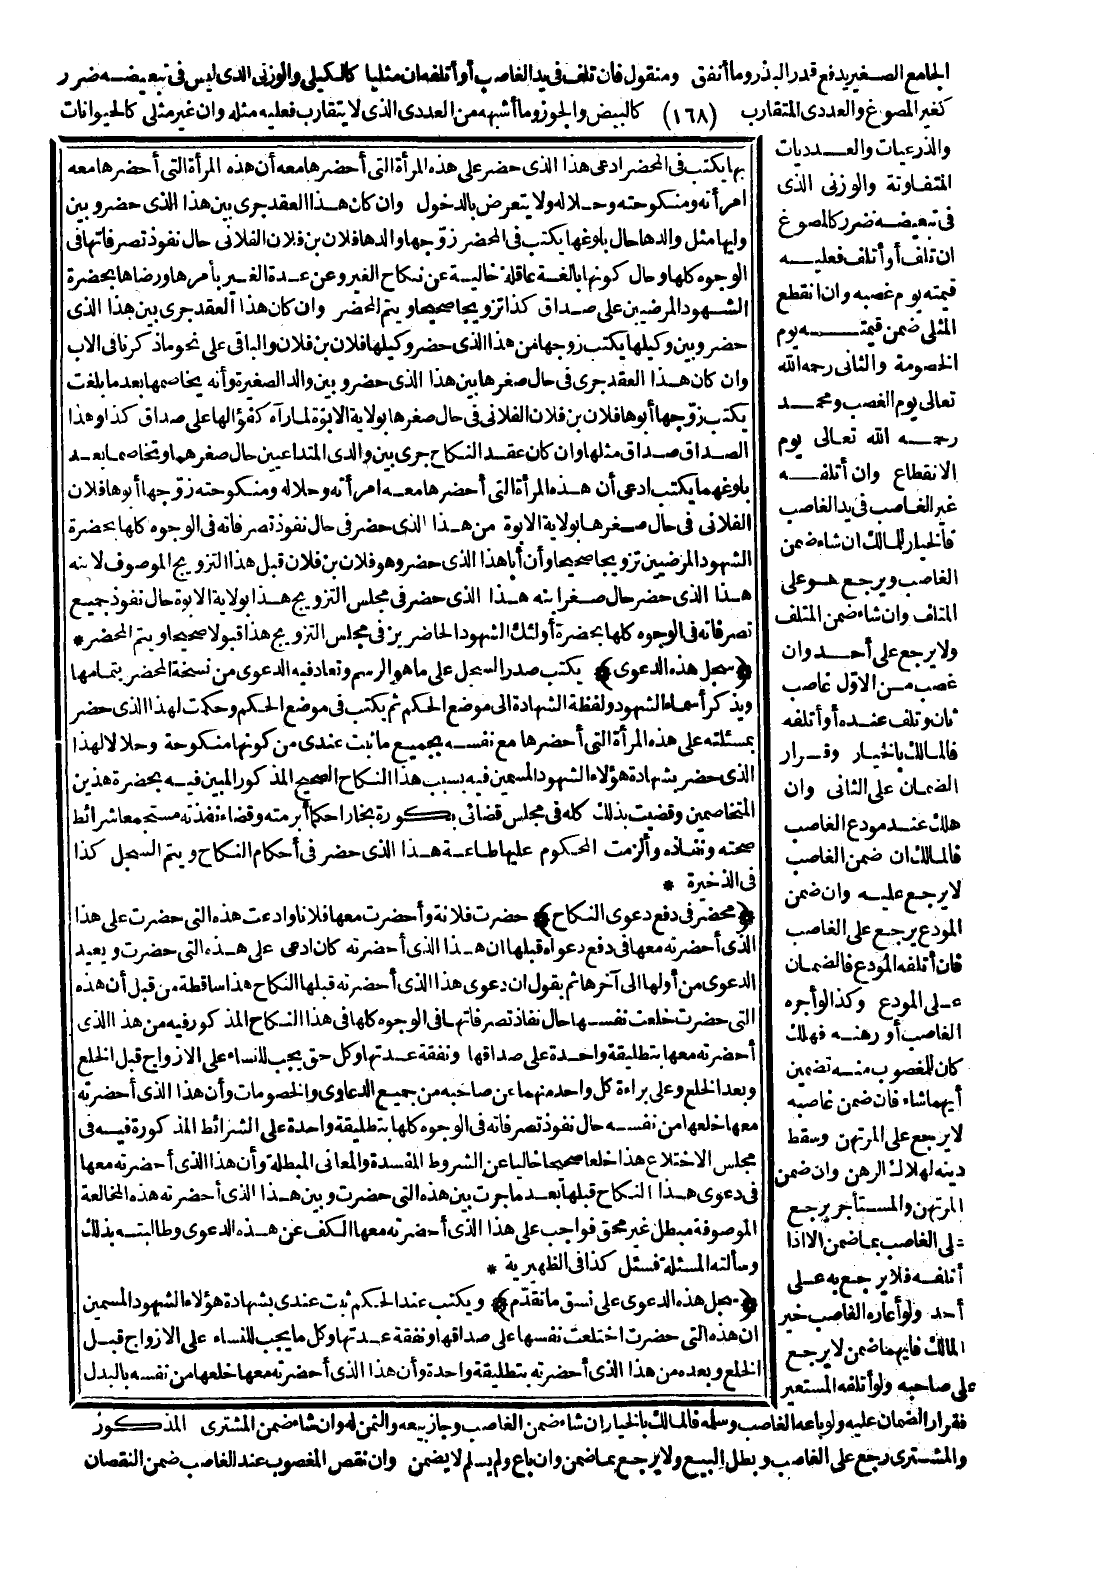 الجامع الصغير يدفع قدر البذر وما أنفق ومنقول فان تلف فى يد الغاصب أو أتلفه ان مثليا كالكيلى والوزنى الذى ليس فى تبعيضه ضرر
كغير المصوغ والعددى المتقارب (١٦٨) كالبيض والجوز وما أشبهه من العددى الذى لا يتقارب فعليه مثله وان غير مثلى كالحيوانات
بها يكتب فى المحضر ادعى هذا الذى حضر على هذه المرأة التى أحضرها معه أن هذه المرأة التى أحضرها معه
امرأته ومنكوحته وحلاله ولا يتعرض بالدخول وان كان هذا العقد جرى بين هذا الذى حضر و بين
وليها مثل والدها حال بلوغها يكتب فى المحضر زوّجها والدها فلان بن فلان الفلانى حال نفوذ تصرفاتها فى
الوجوه كلها وحال كونها بالغة عاقلة خالية عن نكاح الغير وعن عدة الغير بأمرها ورضاها بحضرة
الشهود المرضيين على صداق كذا تزويجا صحيحا ويتم المحضر وان كان هذا العقد جرى بين هذا الذى
حضر و بين وكيلها يكتب زوجها من هذا الذى حضر وكيلها فلان بن فلان والباقى على نحو ماذكرنا فى الاب
وان كان هذا العقد جرى فى حال صغرها بين هذا الذى حضر و بين والد الصغيرة وأنه يخاصمها بعد ما بلغت
يكتب زوّجها أبوها فلان بن فلان الفلانى فى حال صغرها بولاية الابوّة لما رآه كفؤا لها على صداق كذا وهذا
الصداق صداق مثلها وان كان عقد النكاح جرى بين والدى المتداعيين حال صغرهما وتخاصما بعد
بلوغهما يكتب ادعى أن هذه المرأة التى أحضرها معه امرأته وحلاله ومنكوحته زوّجها أبوها فلان
الفلانى فى حال صغرها بولاية الابوة من هذا الذى حضر فى حال نفوذ تصرفاته فى الوجوه كلها بحضرة
الشهود المرضيين تزويجا صحيحا وأن أبا هذا الذى حضر وهو فلان بن فلان قبل هذا التزويج الموصوف لابنه
هذا الذى حضر حال صغر ابنه هذا الذى حضر فى مجلس التزويج هذا بولاية الابوة حال نفوذ جميع
تصرفاته فى الوجوه كلها بحضرة أولئك الشهود الحاضرين فى مجلس التزويج هذا قبولا صحيحا ويتم المحضر *
﴿سجل هذه الدعوى﴾ يكتب صدر السجل على ما هو الرسم وتعاد فيه الدعوى من نسخة المحضر بتمامها
ويذكر أسماء الشهود ولفظة الشهادة الى موضع الحكم ثم يكتب فى موضع الحكم وحكمت لهذا الذى حضر
بمسئلته على هذه المرأة التى أحضرها مع نفسه بجميع ما ثبت عندى من كونها منكوحة وحلالا لهذا
الذى حضر بشهادة هؤلاء الشهود المسمين فيه بسبب هذا النكاح الصحيح المذكور المبين فيه بحضرة هذين
المتخاصمين وقضيت بذلك كله فى مجلس قضائى بكورة بخارا حكما أبرمته وقضاء نفذته مستجمعا شرائط
صحته ونفاذه وألزمت المحكوم عليها طاعة هذا الذى حضر فى أحكام النكاح و يتم السجل كذا
فى الذخيرة *
﴿محضر فى دفع دعوى النكاح﴾ حضرت فلانة وأحضرت معها فلانا وادعت هذه التى حضرت على هذا
الذى أحضرته معها فى دفع دعواه قبلها ان هذا الذى أحضرته كان ادعى على هذه التى حضرت و يعيد
الدعوى من أولها الى آخرها ثم يقول ان دعوى هذا الذى أحضرته قبلها النكاح هذا ساقطة من قبل أن هذه
التى حضرت خلعت نفسها حال نفاذ تصرفاتها فى الوجوه كلها فى هذا النكاح المذكور فيه من هذا الذى
أحضرته معها بتطليقة واحدة على صداقها ونفقة عدتها وكل حق يجب للنساء على الازواج قبل الخلع
و بعد الخلع وعلى براءة كل واحد منهما عن صاحبه من جميع الدعاوى والخصومات وأن هذا الذى أحضرته
معها خلعها من نفسه حال نفوذ تصرفاته فى الوجوه كلها بتطليقة واحدة على الشرائط المذكورة فيه فى
مجلس الاختلاع هذا خلعا صحيحا خاليا عن الشروط المفسدة والمعانى المبطلة وأن هذا الذى أحضرته معها
فى دعوى هذا النكاح قبلها بعد ما جرت بين هذه التى حضرت و بين هذا الذى أحضرته هذه المخالعة
الموصوفة مبطل غير محق فواجب على هذا الذى أحضرته معها الكف عن هذه الدعوى وطالبته بذلك
وسألته المسئلة فسئل كذا فى الظهيرية *
﴿سجل هذه الدعوى على نسق ما تقدّم﴾ و يكتب عند الحكم ثبت عندى بشهادة هؤلاء الشهود المسمين
ان هذه التى حضرت اختلعت نفسها على صداقها ونفقة عدتها وكل ما يجب للنساء على الازواج قبل
الخلع و بعده من هذا الذى أحضرته بتطليقة واحدة وأن هذا الذى أحضرته معها خلعها من نفسه بالبدل
والذرعيات والعدديات
المتفاوتة والوزنى الذى
فى تبعيضه ضرر كالمصوغ
ان تلف أو أتلف فعليه
قيمته يوم غصبه وان انقطع
المثلى ضمن قيمته يوم
الخصومة والثانى رحمه الله
تعالى يوم الغصب ومحمد
رحمه الله تعالى يوم
الانقطاع وان أتلفه
غير الغاصب فى يد الغاصب
فالخيار للمالك ان شاء ضمن
الغاصب ويرجع هو على
المتلف وان شاء ضمن المتلف
ولا يرجع على أحد وان
غصب من الاوّل غاصب
ثان وتلف عنده أو أتلفه
فالمالك بالخيار وقرار
الضمان على الثانى وان
هلك عند مودع الغاصب
فالمالك ان ضمن الغاصب
لا يرجع عليه وان ضمن
المودع يرجع على الغاصب
فان أتلفه المودع فالضمان
على المودع وكذا لو أجره
الغاصب أو رهنه فهلك
كان للمغصوب منه تضمين
أيهما شاء فان ضمن غاصبه
لا يرجع على المرتهن وسقط
دينه لهلاك الرهن وان ضمن
المرتهن والمستأجر يرجع
على الغاصب بما ضمن الا اذا
أتلفه فلا يرجع به على
أحد ولو أعاره الغاصب خير
المالك فأيهما ضمن لا يرجع
على صاحبه ولو أتلفه المستعير
فقرار الضمان عليه ولو باعه الغاصب وسلمه فالمالك بالخيار ان شاء ضمن الغاصب وجاز بيعه والثمن له وان شاء ضمن المشترى المذكور
والمشترى رجع على الغاصب و بطل البيع ولا يرجع بما ضمن وان باع ولم يسلم لا يضمن وان نقص المغصوب عند الغاصب ضمن النقصان